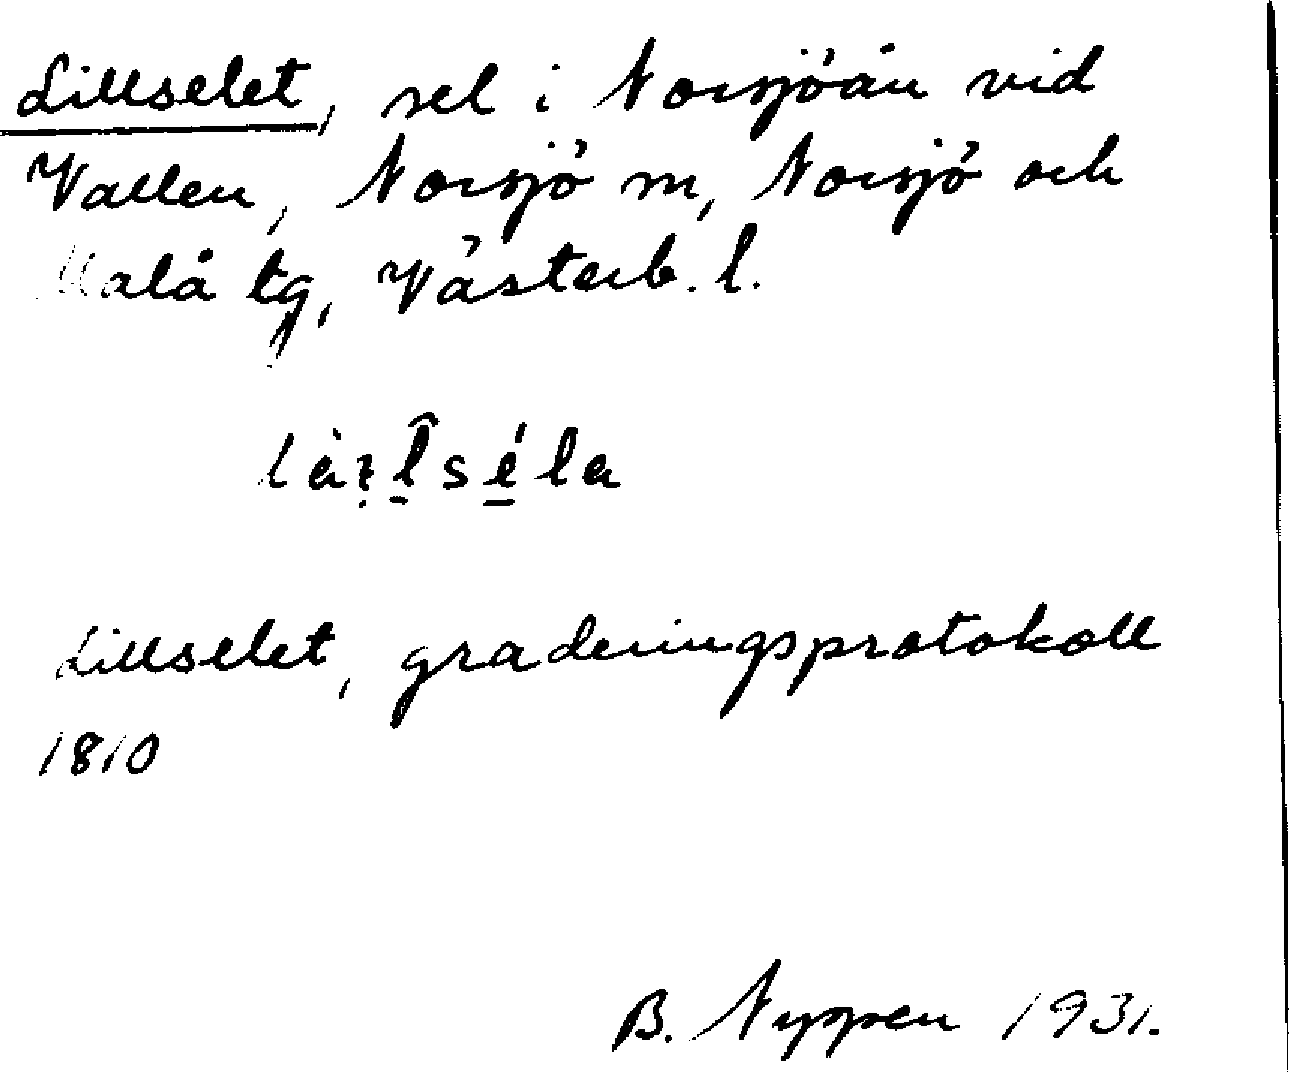 Lillselet, sel i Norsjöån vid
Vallen, Norsjö m, Norsjö och
Malå tg, Västerb. l.
Lillselet, graderingsprotokoll
1810
B. Nyppen 1931.